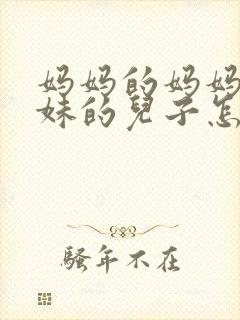 妈妈的妈妈
妹的兒子怎
騷年不在